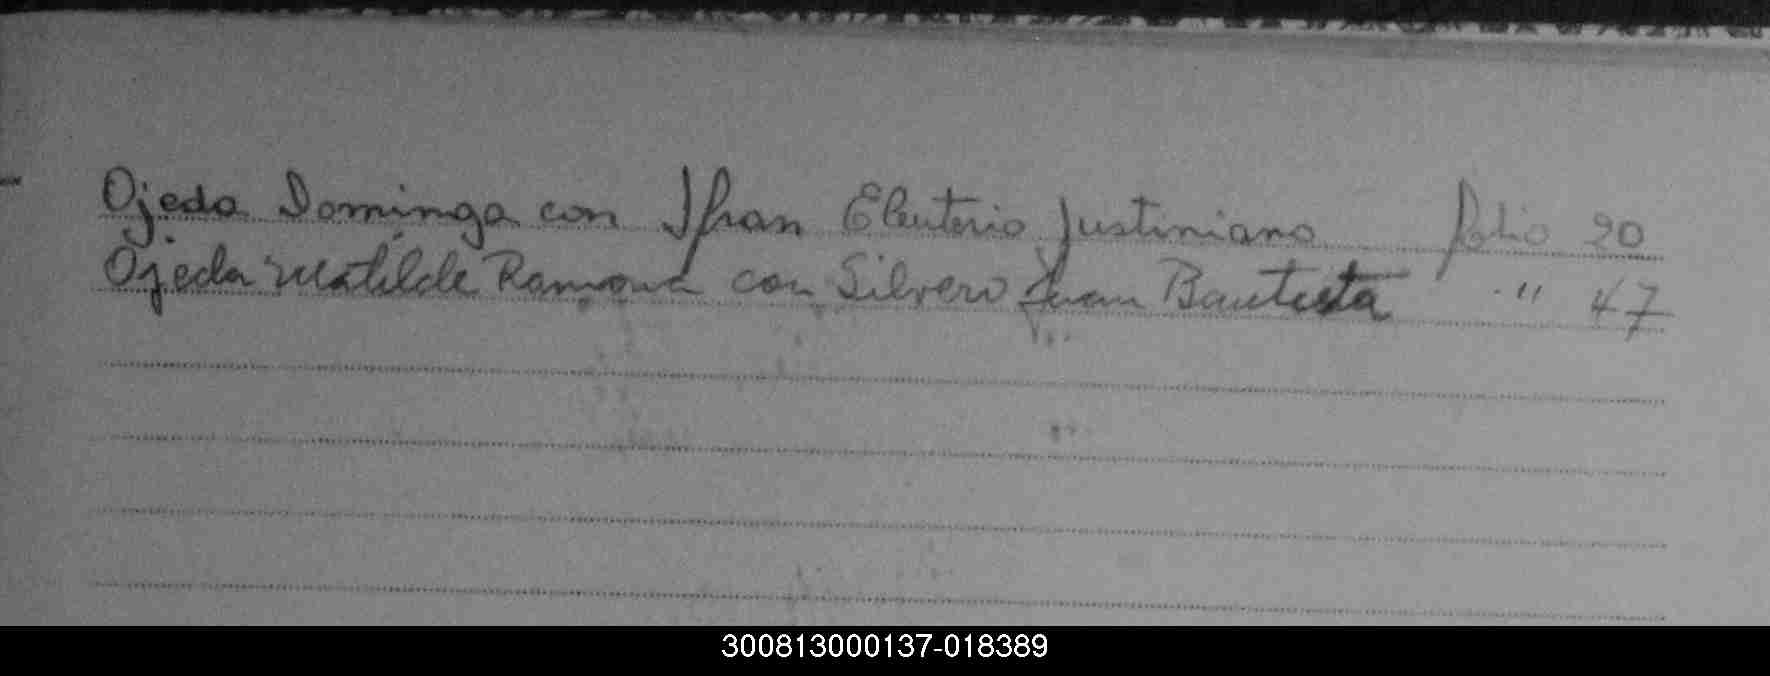 Ojeda Dominga con Ifran Eleuterio Justiniano folio 20
Ojeda Matilde Ramona con Silvero Juan Bautista " 47
300813000137-018389